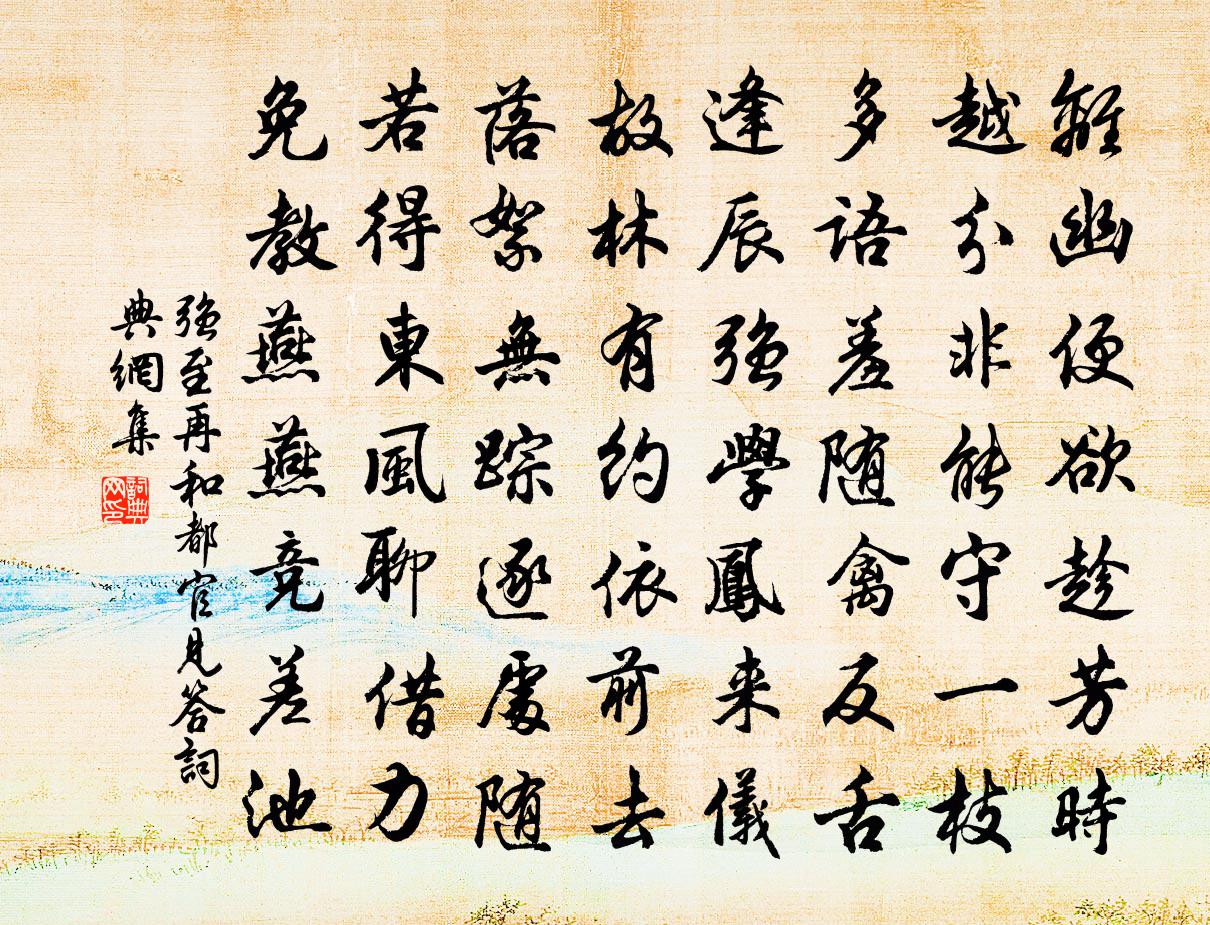 離幽便欲趁芳時
越分非能守一枝
多語羞随禽反舌
逢辰强學鳳来儀
故林有約依前去
落絮無踪逐處随
若得東風聊借力
免教燕燕竞差池
强至再和都官見答詞
典網集
詞典
网印